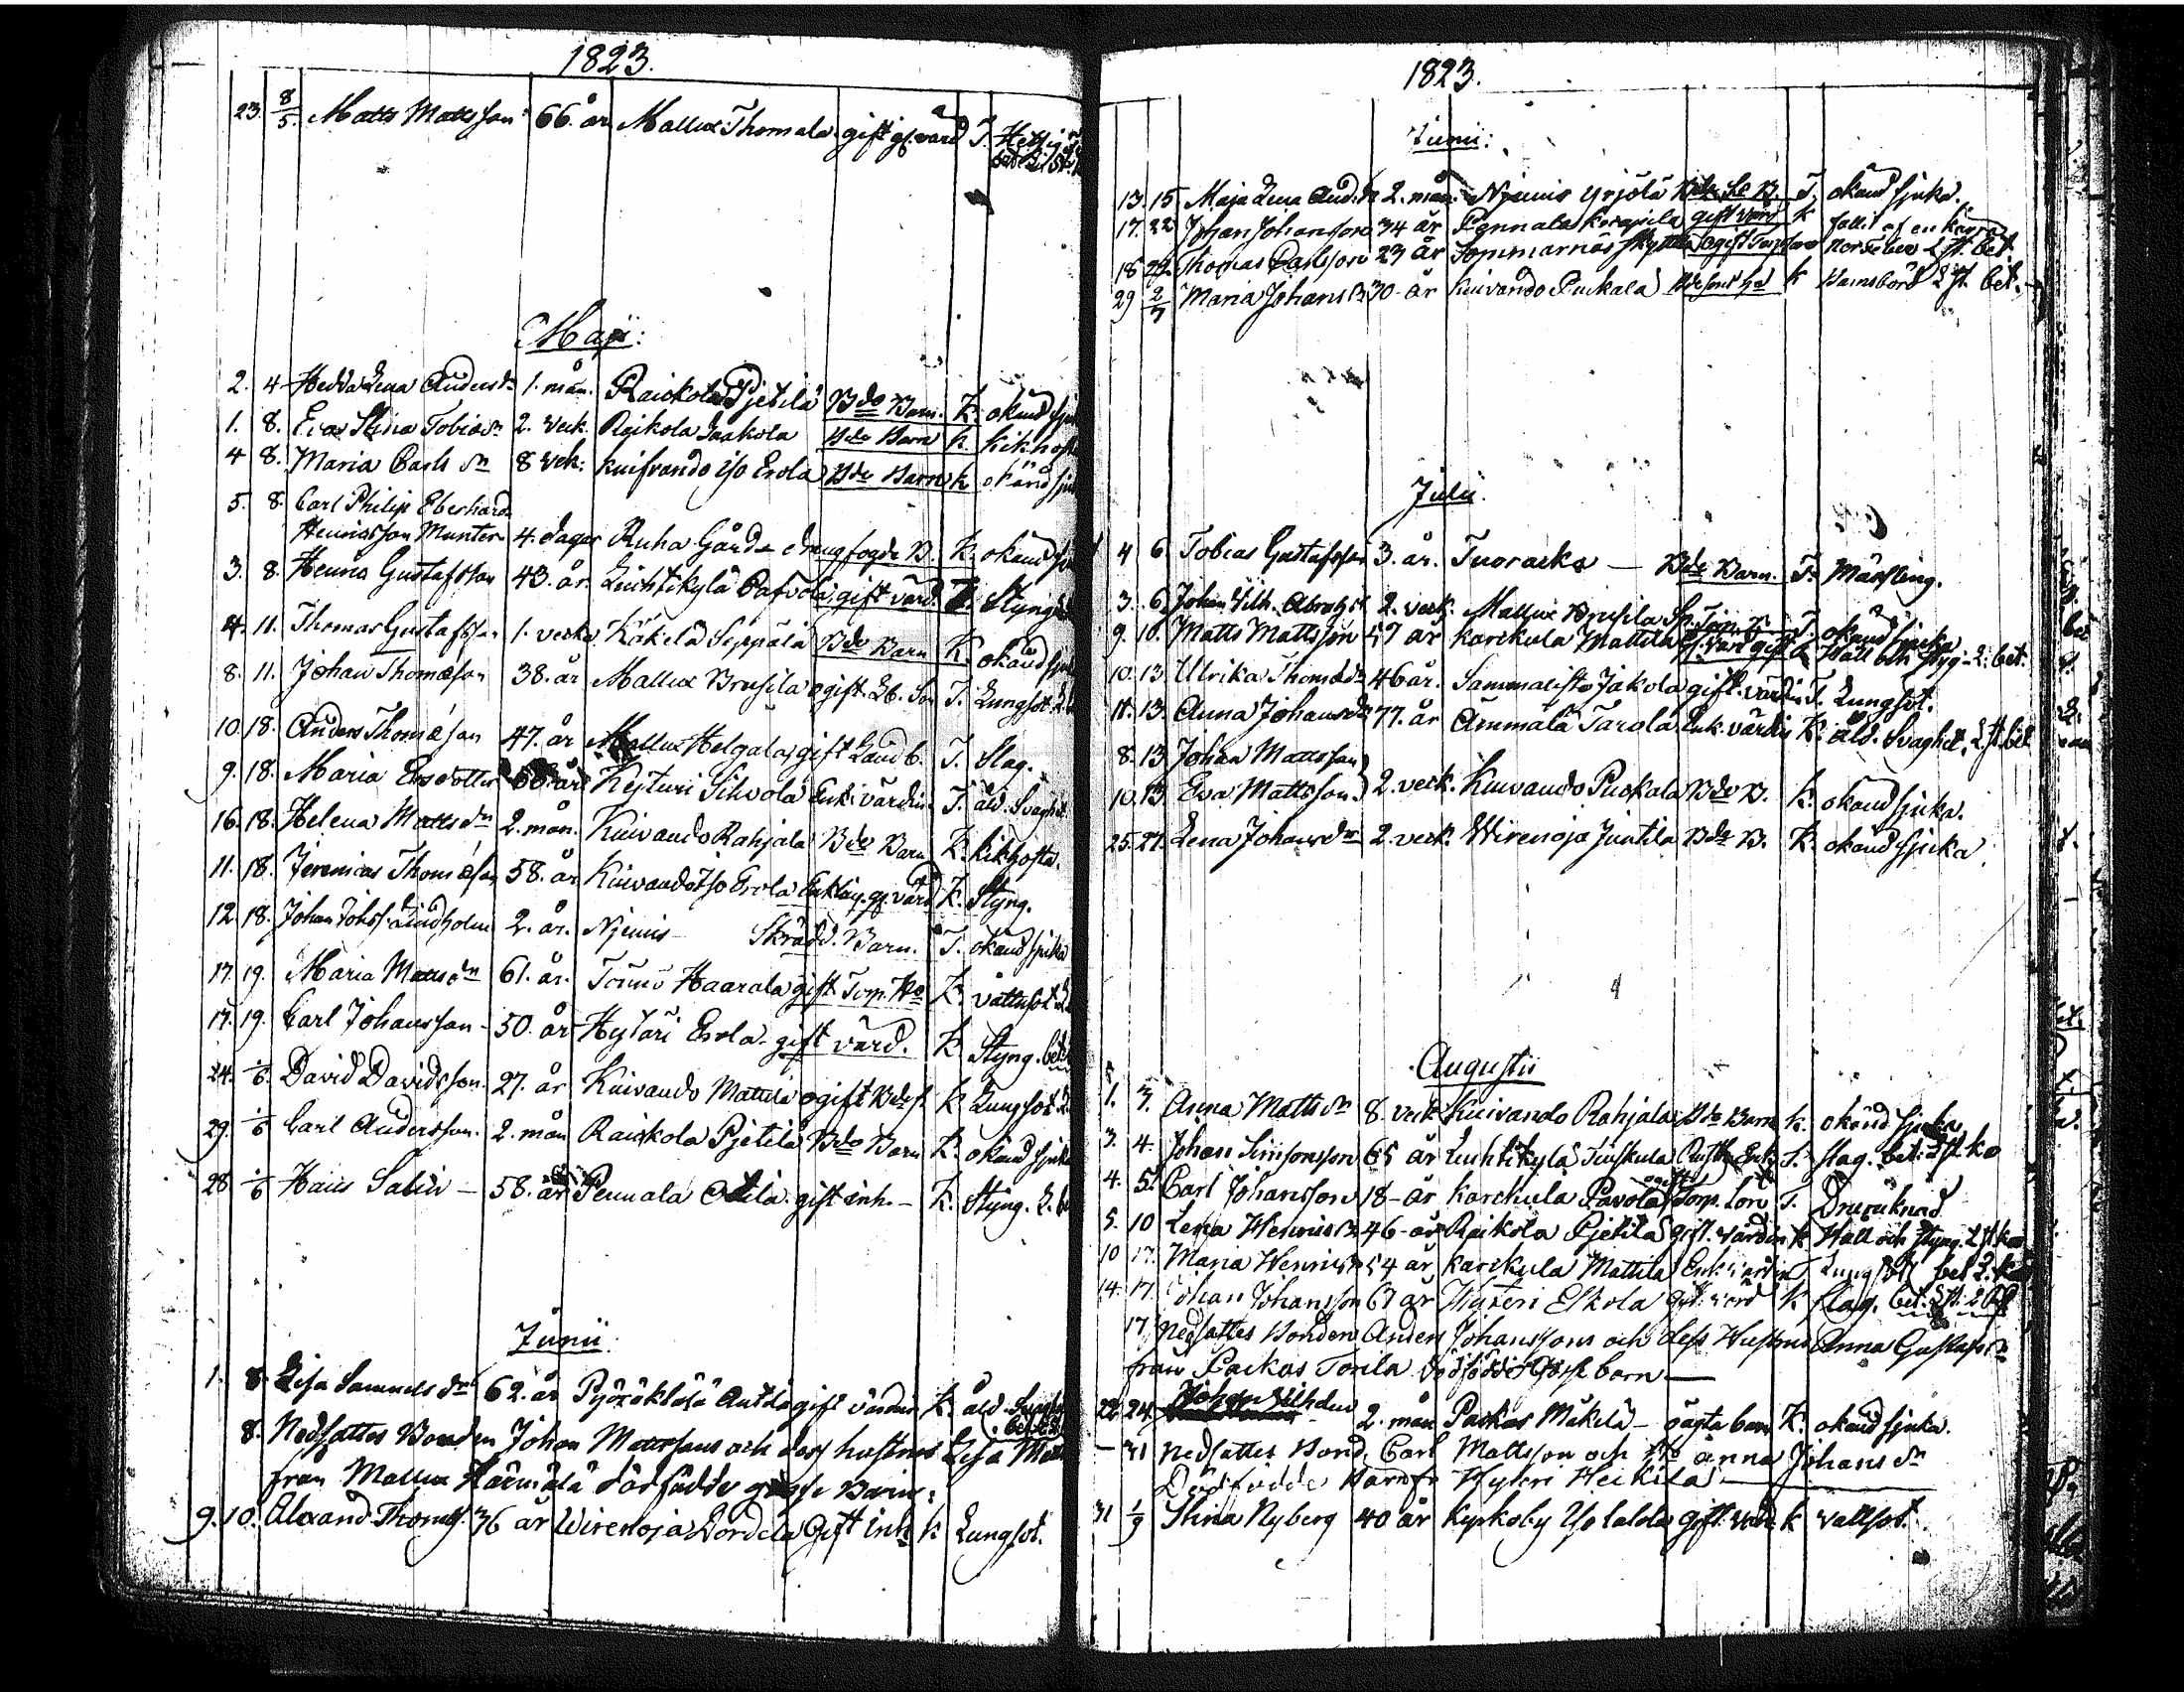 1823.
23. 8/5. Matts Mattsson 66. år Mallux Thomala gift gf. värd T.
Maji:
2. 4 Hedda Lena Andersdr 1. mån. Raickola Pjetilä Bde Barn. K. okänd sju
1. 8. Eva Stina Tobiædr 2. veck. Raikola Jaakola Bde Barn k. kikhosta
4 8. Maria Carlsdr 8 vek: kuifvando iso Erola Bde Barn k okänd sju
5. 8. Carl Philip Eberhard
Henricsson Munter 4. dagar Ruha Gård drengfogde B. K. okänd sju
3. 8. Henric Gustafsson 43. år Luhtikylä Pafvola gift värd. T. Styng
4. 11. Thomas Gustafsson 1. vecka Käkelä Seppälä Bde Barn K. okänd sju
8. 11. Johan Thomæson 38. år Mallux Brusila ogift Lb. Son T. Lungsot
10. 18. Anders Thomæson 47. år Mallux Helgala gift Landb. T. Slag.
9. 18. Maria Ersdotter 68. år Kejturi Silvola Enk. värdin. T. åld. Svaghet
16. 18. Helena Mattsdr 2. mån. Kuivando Rahjala Bde Barn K. kikhosta.
11. 18. Jeremias Thomæson 58. år Kuivando Iso Erola Enkling. gf. värd K. Styng.
12. 18. Johan Johss. Lindholm 2. år. Njemis Skrädd. Barn. T. okänd sjuka
17. 19. Maria Mattsdr 61. år. Tormo Haarala gift Torp. Ho K. vattusot
17. 19. Carl Johansson 50. år Hytäri Erola gift värd. K Styng. bet
24. 1/6. David Davidsson. 27. år Kuivando Mattila ogift Bdes. K Lungsot
29. 1/6 Carl Andersson. 2. mån Raickola Pjetilä Bde Barn K. okänd sjuka
28 1/6 Hans Salin — 58. år Pennala Otila gift inh. — K. Styng.
Junii:
1. 8. Lisa Samuelsdr 62. år Pyöräktälä Anttila gift värdin K. åld. Svaghet
8. Nedsattes Bonden Johan Mattssons och dess hustrus Lisa Matts
från Mallux Härmälä dödfödde gosse Barn:
9. 10. Alexand. Thomæs. 36 år Wirenoja Lordila Gift Inh. k Lungsot.
1823.
Junii:
13. 15 Maja Lena And.dr 2. mån. Njemis Yrjölä B. T. okänd sjuka.
17. 22 Johan Johansson 34 år Pennala Korapila gift värd k fallit af en kärra
18 22. Thomas Carlsson 23 år Sommarnäs
29 2/7 Maria Johansdr 30 år Kuivando Puckala k Barnsbörd 2 st. bet.
Julii.
4 6. Tobias Gustafsson 3. år. Tuoracka — Bde Barn. T. Mässling.
3. 6. Johan Vilh. 2. veck. Mallux Brusila T okänd sjuka
9. 10. Matts Mattsson 57 år karckula Mattila gf. värd gift k Håll och styng. 2. bet.
10. 13. Ulrika Thomædr 46 år. Sammalisto Jakola gift. värdin T. Lungsot.
11. 13. Anna Johansdr 77. år Ämmälä Tarola Enk. värdin K. åld. Svaghet, 2 st. bet
8. 13 Johan Mattsson
10. 13. Eva Mattsson 2. veck. Kuivando Puckala Bde B. K. okänd sjuka.
25. 27. Lena Johansdr 2. veck. Wirenoja Juntila Bde B. K. okänd sjuka.
Augustii
1. 3. Anna Mattsdr 8. veck Kuivando Rahjala Bde Barn k. okänd sjuka
3. 4. Johan Simonsson 65 år Luhtikylä Tinskula Enk. T. slag. bet. 2 st. ko
4. 5. Carl Johansson 18 år karckula Pavola ogift Torp. son T. Drunknad
5. 10 Lena Henricsdr 46 år Raikola Pjetilä gift. värdin k Håll och styng. 2 st ko
10 17. Maria Henricsdr 54 år karckula Mattila Enk. värdin T Lungsot bet 2. ko
14. 17. Johan Johansson 67 år Hyteri Eskola gift värd k slag. bet. 2 st.
17 Nedsattes Bonden Anders Johanssons och dess Hustrus Anna Gustafsdr
från Packas Torila dödfödde Gosse barn —
22 24. Johan Vilhelm 2. mån Packas Mäkelä — oägta barn K. okänd sjuka.
— 31 Nedsattes Bond. Carl Mattsson och Ho Anna Johansdr
Dödfödde Barn fr Hyteri Heikilä —
31 1/9 Stina Nyberg 40 år Kyrkoby gift k vattsot.